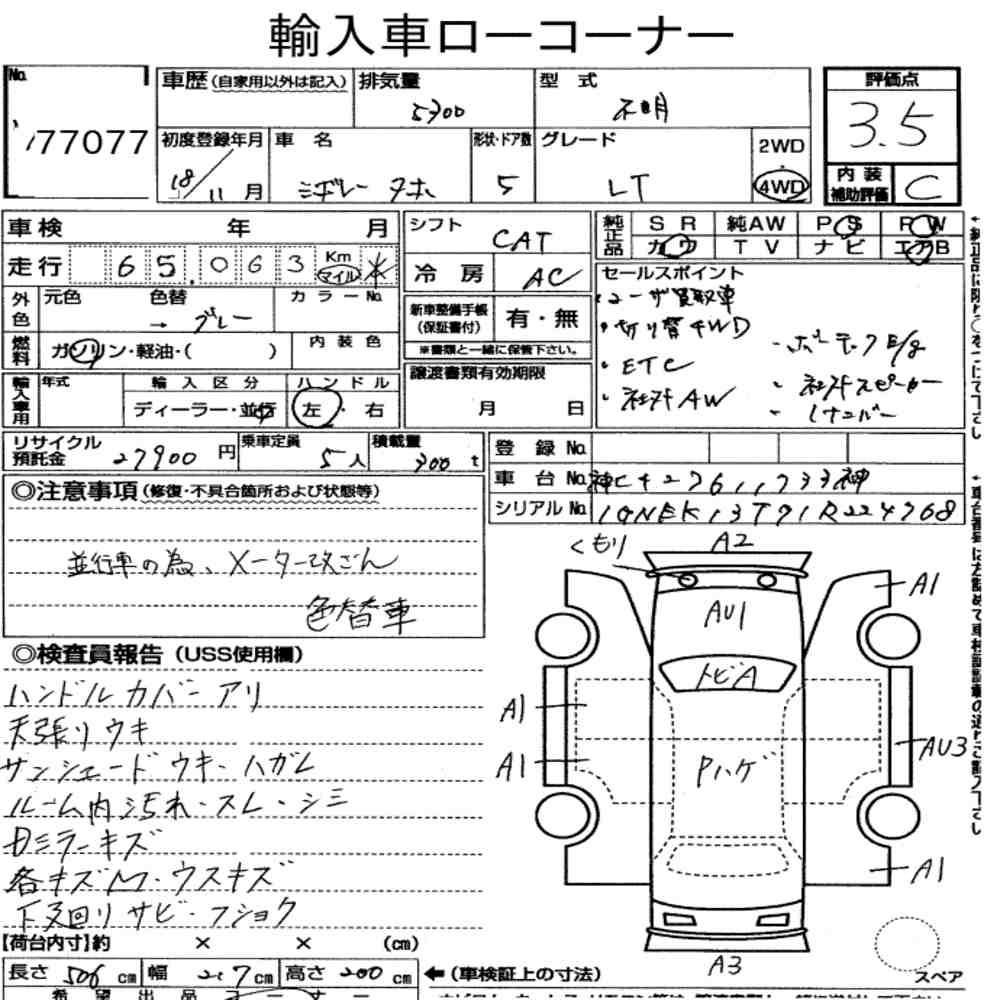 輸入車ローコーナー
No.
77077
車歴(自家用以外は記入)
排気量
5300
型式
不明
評価点
3.5
初度登録年月
18/11月
車名
シボレー タホ
形状・ドア数
5
グレード
LT
2WD
4WD
内装補助評価
C
車検 年 月
走行 65,063 Km マイル
シフト
CAT
冷房
AC
純正品
SR 純AW PS PW
カワ TV ナビ エアB
外色
元色 色替 カラーNo.
→ グレー
燃料
ガソリン・軽油・( )
内装色
新車整備手帳(保証書付)
有・無
※書類と一緒に保管下さい。
セールスポイント
・ユーザ買取車
・切り替4WD
・ETC
・社外AW
・社外スピーカー
・1ナンバー
輸入車用
年式
輸入区分
ディーラー・並行
ハンドル
左・右
譲渡書類有効期限
月 日
リサイクル預託金
27900円
乗車定員
5人
積載量
300 t
登録No.
車台No.
シリアルNo.
◎注意事項(修復・不具合箇所および状態等)
並行車の為、メーター改ざん
色替車
◎検査員報告(USS使用欄)
ハンドルカバーアリ
天張リウキ
サンシェードウキ・ハガレ
ルーム内汚れ・スレ・シミ
各キズ凹・ウスキズ
下廻リサビ・フショク
くもり
A2
AU1
A1
トビA
A1
A1
AU3
Pハゲ
A1
A3
スペア
【荷台内寸】約 × × (cm)
長さ 506cm 幅 207cm 高さ 200cm
←(車検証上の寸法)